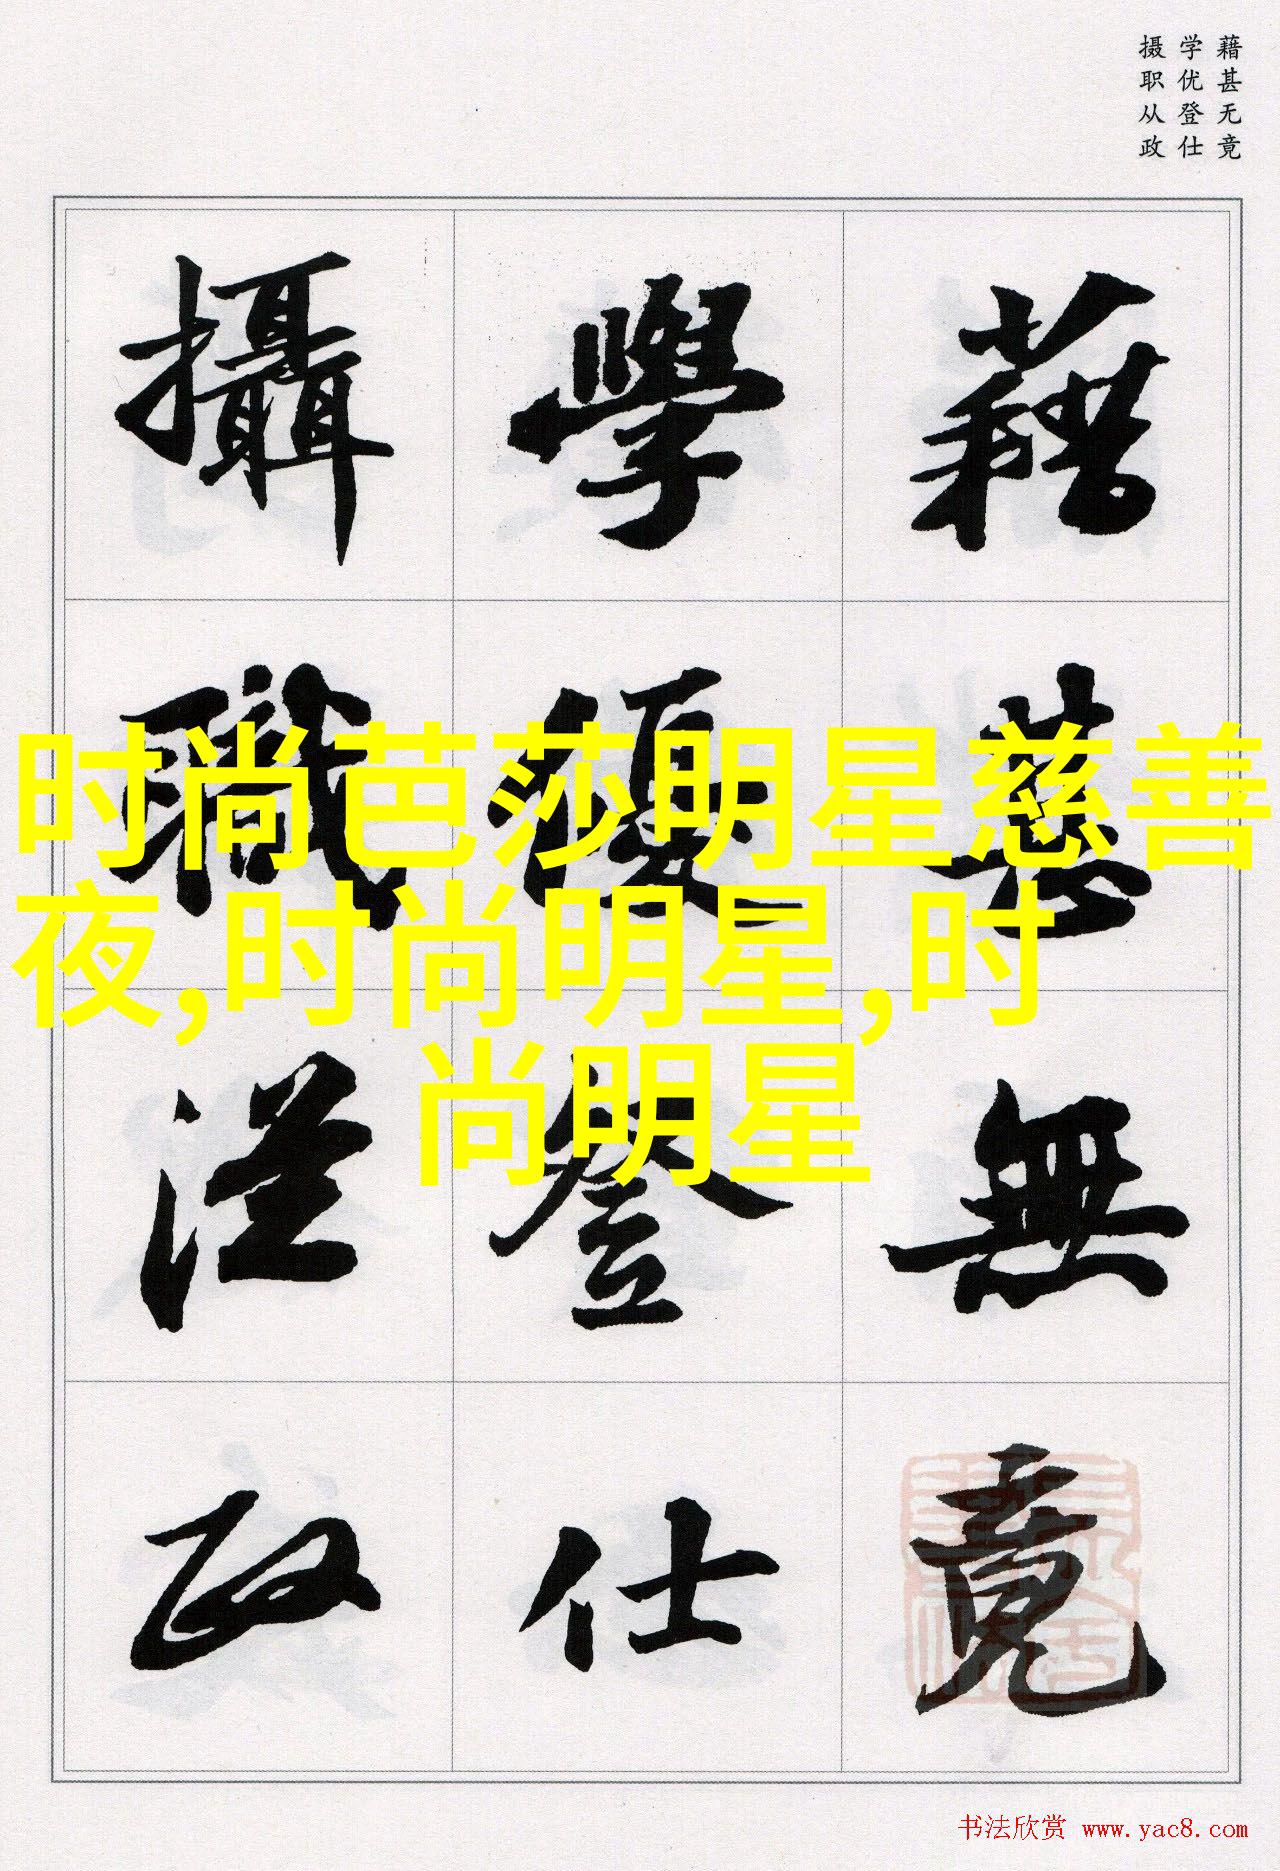 藉甚无竟
学优登仕
摄职从政
藉甚無竟
學優登仕
攝職從政
时尚芭莎明星慈善
夜,时尚明星,时
尚明星
书法欣赏 www.yac8.com